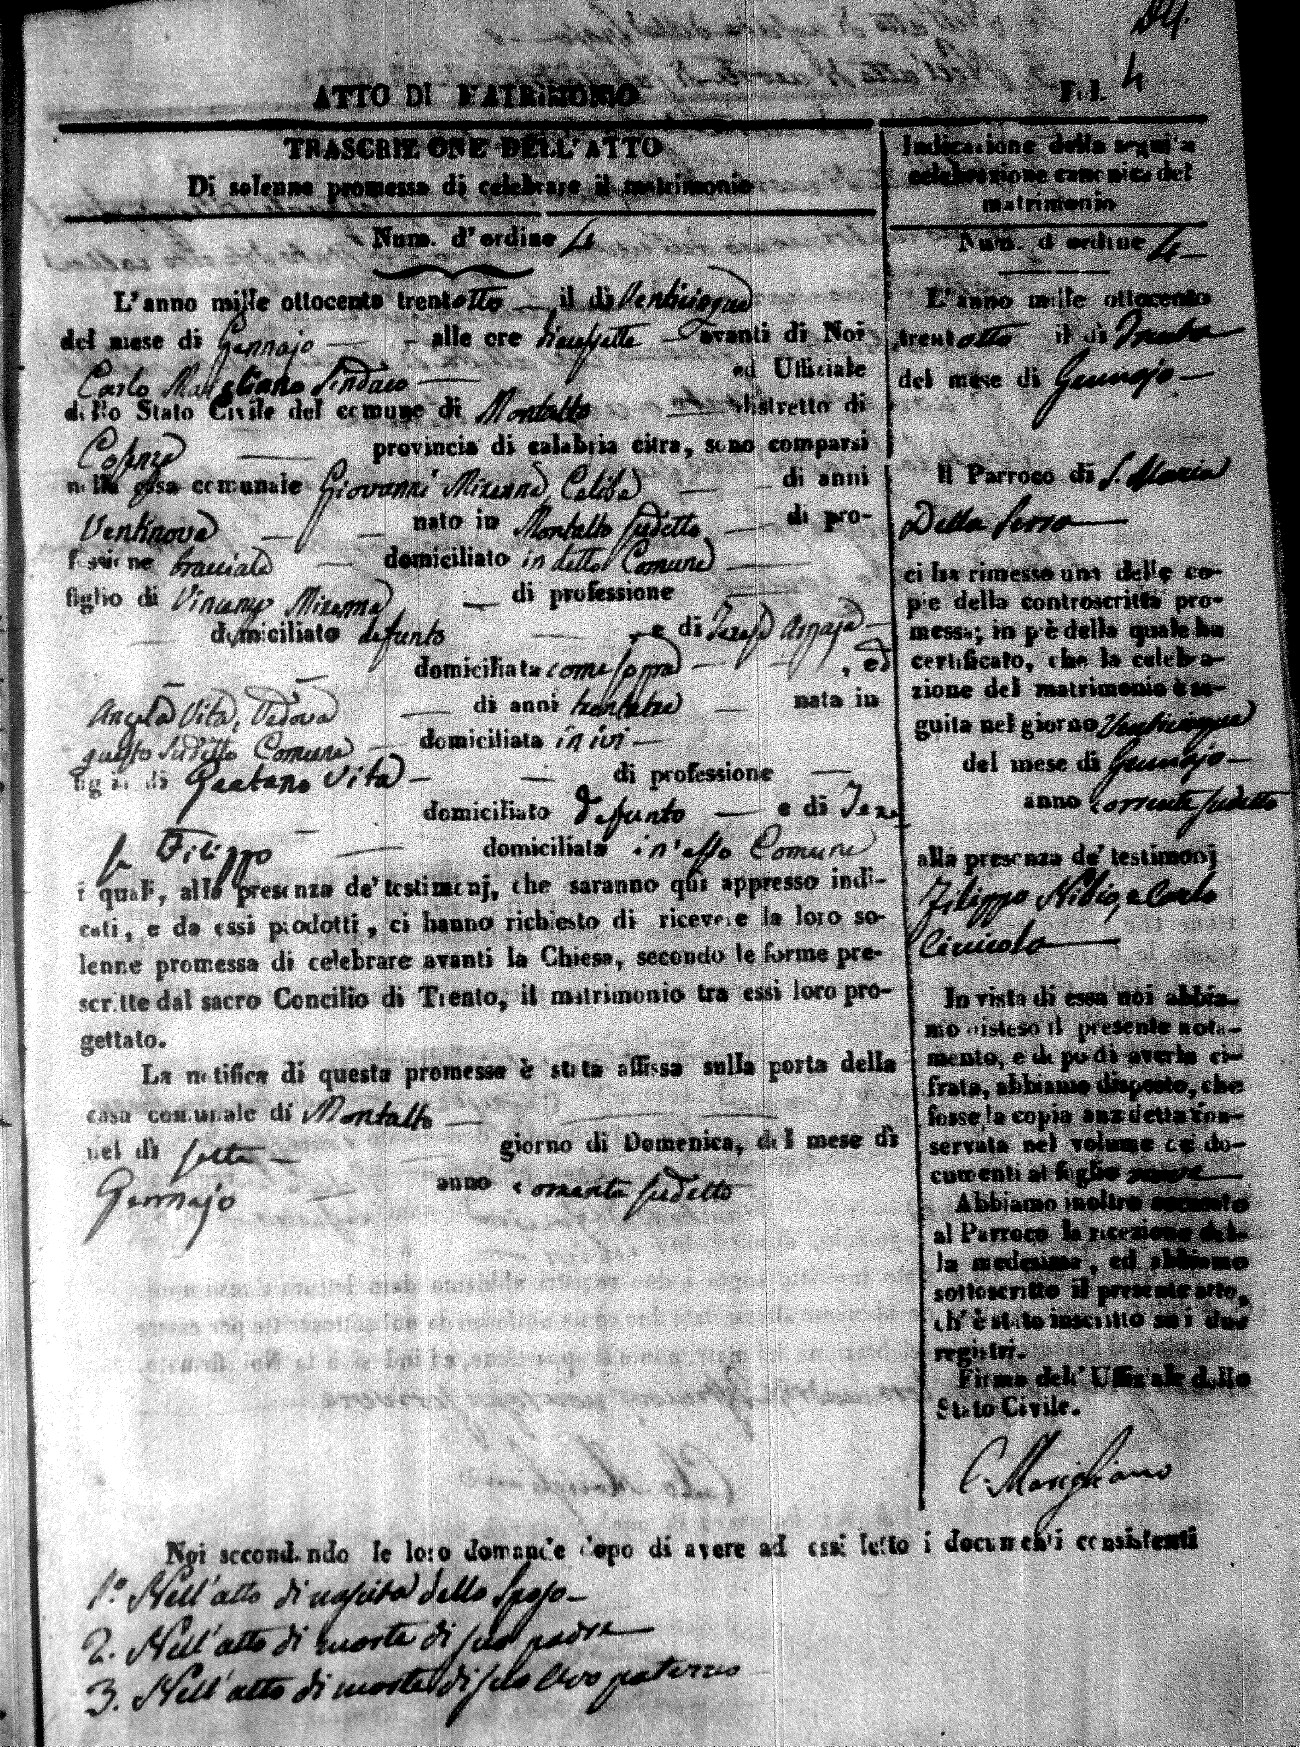 ATTO DI MATRIMONIO
Fol. 4
TRASCRIZIONE DELL'ATTO
Di solenne promessa di celebrare il matrimonio
Num. d'ordine 4
L'anno mille ottocento trentotto il di Venticinque
del mese di Gennajo alle ore avanti di Noi
Carlo Marigliano Sindaco ed Uffiziale
dello Stato Civile del comune di Montalto distretto di
Cosenza provincia di calabria citra, sono comparsi
nella casa comunale Giovanni di anni
Ventinove nato in Montalto sudetto di pro-
fessione bracciale domiciliato in detto Comune
figlio di Vincenzo di professione
domiciliato defunto e di
domiciliata come sopra , ed
Angela Vita, Vedova di anni trentatre nata in
questo sudetto Comune domiciliata in ivi
figlia di Gaetano Vita di professione
domiciliato defunto e di
Filippo domiciliata in esso Comune
i quali, alla presenza de' testimonj, che saranno quì appresso indi-
cati, e da essi prodotti, ci hanno richiesto di ricevere la loro so-
lenne promessa di celebrare avanti la Chiesa, secondo le forme pre-
scritte dal sacro Concilio di Trento, il matrimonio tra essi loro pro-
gettato.
La notifica di questa promessa è stata affissa sulla porta della
casa comunale di Montalto
nel dì sette giorno di Domenica, del mese di
Gennajo anno corrente sudetto
Indicazione della seguita
celebrazione canonica del
matrimonio
Num. d'ordine 4
L'anno mille ottocento
trentotto il di Trenta
del mese di Gennajo
Il Parroco di S. Maria
Della Serra
ci ha rimesso una delle co-
pie della controscritta pro-
messa; in piè della quale ha
certificato, che la celebra-
zione del matrimonio è se-
guita nel giorno Venticinque
del mese di Gennajo
anno corrente sudetto
alla presenza de' testimonj
Filippo Nibio, e Carlo

In vista di essa noi abbia-
mo disteso il presente nota-
mento, e dopo di averla ci-
frata, abbiamo disposto, che
fosse la copia anzidetta con-
servata nel volume de' do-
cumenti al foglio
Abbiamo inoltre accusato
al Parroco la ricezione del-
la medesima, ed abbiamo
sottoscritto il presente atto,
ch' è stato inscritto sui due
registri.
Firma dell' Uffiziale dello
Stato Civile.
C. Marigliano
Noi secondando le loro domande dopo di avere ad essi letto i documenti consistenti
1.° Nell'atto di nascita dello Sposo
2. Nell'atto di morte di suo padre
3. Nell'atto di morte di suo Avo paterno